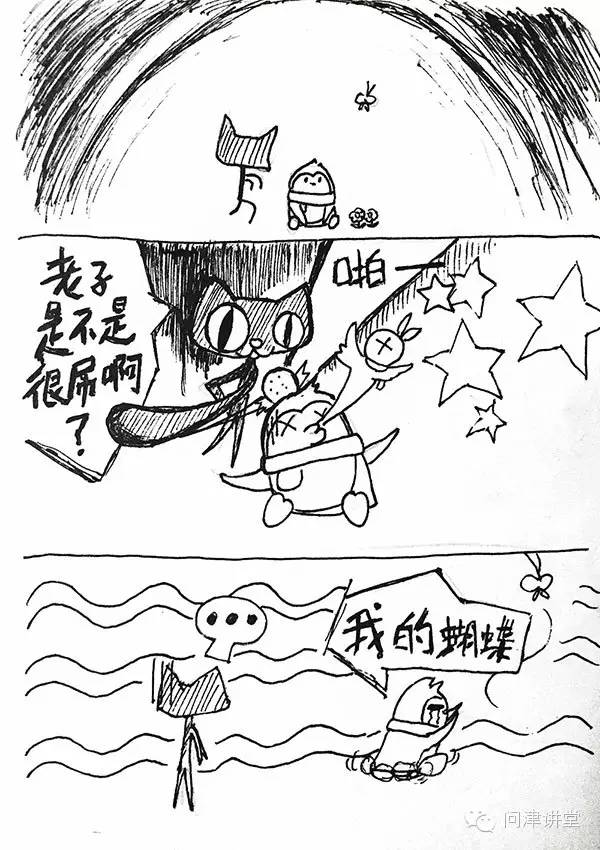 老子
是不是
很屌啊
？
啪一
...
我的蝴蝶
问津讲堂